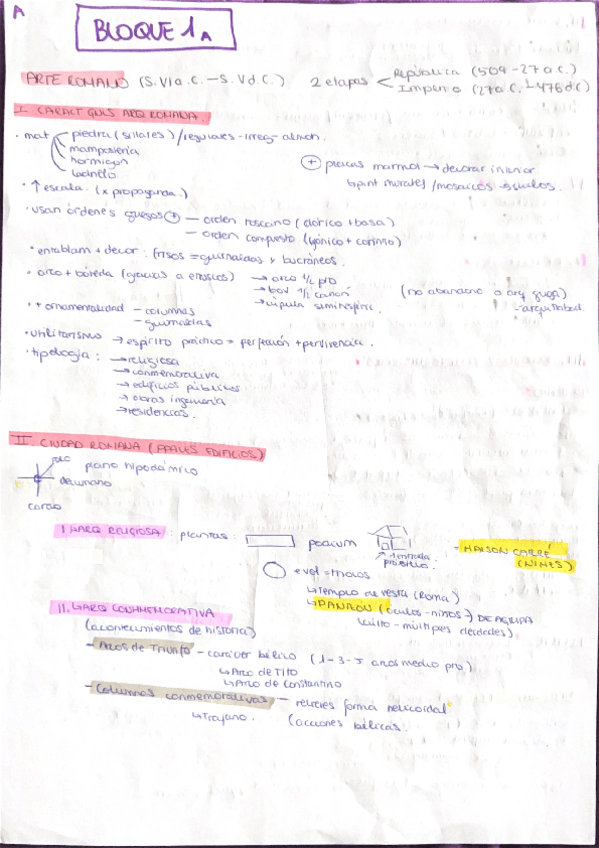 A
BLOQUE 1A
ARTE ROMANO (S. VI a.C. – S. V d.C.) 2 etapas
República (509 - 27 a.C.)
Imperio (27 a.C. - 476 d.C)
I. CARACT GALS ARQ ROMANA.
· mat piedra (sillares) / regulares - irreg - almoh.
mampostería
hormigón
ladrillo
+ placas marmol → decorar interior
pint murales / mosaicos → suelos.
· ↑ escala. (x propaganda)
· usan órdenes griegos + — orden toscano (dórico + basa)
— orden compuesto (jónico + corintio)
· entablam + decor: frisos = guirnaldas y bucráneos.
· arco + bóveda (gracias a etruscos) → arco 1/2 pto
→ bov 1/2 cañón (no abandono arq griega)
→ cúpula semiesféri. - arquitrabad.
· + ornamentalidad - columnas
- guirnaldas
· Utilitarismo → espíritu práctico = perfección + pervivencia.
· tipología: → religiosa
→ conmemorativa
→ edificios públicos
→ obras ingeniería
→ residencias.
II. CIUDAD ROMANA (PPALES EDIFICIOS)
foro plano hipodámico
decumano
cardo
I. ↳ ARQ RELIGIOSA: plantas: podium - MAISON CARRÉ
próstilo. (NIMES)
↳ Templo de Vesta (Roma)
↳ PANTEÓN (óculos - nichos →) DE AGRIPA
culto - múltiples deidades).
II. ↳ ARQ CONMEMORATIVA
(acontecimientos de historia)
- Arcos de Triunfo - carácter bélico (1 - 3 - 5 arcos medio pto)
↳ Arco de Tito
↳ Arco de Constantino
- Columnas conmemorativas — relieves forma helicoidal
↳ Trajano. (acciones bélicas.